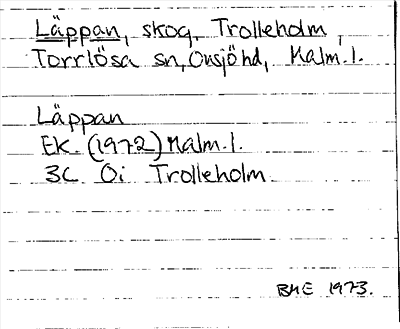 Läppan, skog, Trolleholm,
Torrlösa sn, Onsjö hd, Malm. l.
Läppan
EK. (1972) Malm. l.
3C Oi Trolleholm
BHE 1973.